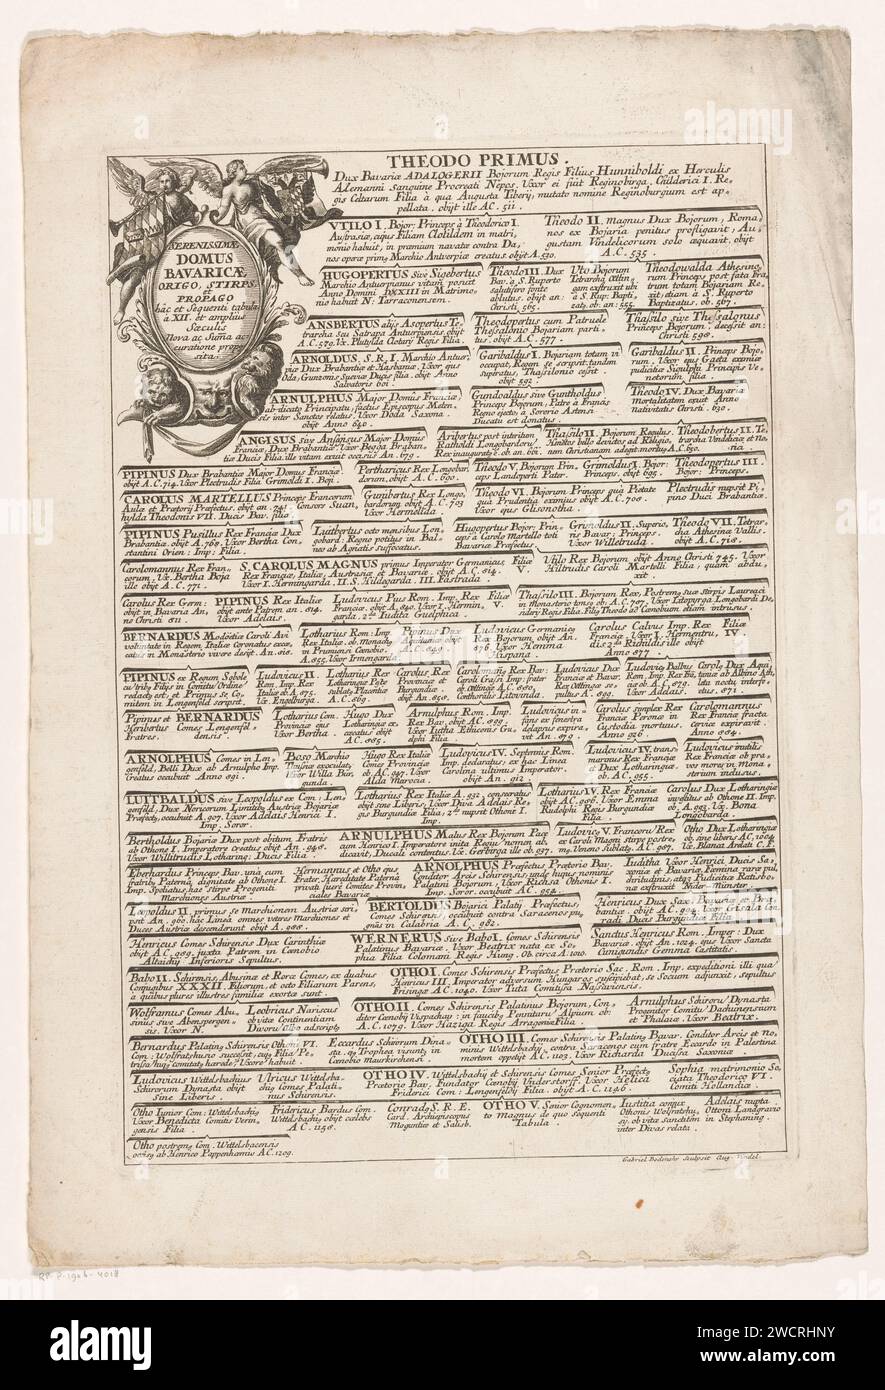 THEODO PRIMUS.
Dux Bavariæ ADALOGERII Bojorum Regis Filius Hunniboldi ex Herculis
Alemanni sanguine Procreati Nepos. Uxor ei fuit Reginobirga, Childerici I. Re-
gis Celtarum Filia à qua Augusta Tiberij, mutato nomine Reginoburgum est ap-
pellata. obijt ille A.C. 511.
SERENISSIMÆ
DOMUS
BAVARICÆ
ORIGO, STIRPS,
et
PROPAGO
hâc et Sequenti tabula
à XII. et amplius
Sæculis
Nova ac Suma ac-
curatione propo-
sita.
UTILO I. Bojor: Princeps à Theodorico I.
Austrasiæ, cujus Filiam Clotildem in matri-
monio habuit, in præmium navatæ contra Da-
nos operæ primg Marchio Antverpiæ creatus. obijt A. 530.
Theodo II. magnus Dux Bojorum, Roma-
nos ex Bojaria penitus profligavit, Au-
gustam Vindelicorum solo æquavit. obijt
A.C. 535.
HUGOPERTUS Sive Sigebertus
Marchio Antuerpianus vitam posuit
Anno Domini DXXIII in Matrimo-
nio habuit N: Tarraconensem.
Theodo III. Dux
Bav. à S. Ruperto
ablutus. obijt an:
Christi 565.
Uto Bojorum
Tetrarcha
à S. Rup: Bapti-
zatg. ob: an: 555.
Theodowalda Athesing
rum Princeps post fata Fra-
trum totam Bojariam Re-
xit; etiam à S. Ruperto
Baptizatus. ob. 567.
ANSBERTUS alijs Asopertus Te-
trarcha seu Satrapa Antuerpiensis. obijt
A.C. 570. Ux. Plutylda Clotarij Regis Filia.
Theodopertus cum Patruele
Thessalonio Bojariam parti-
tus. obijt A.C. 577.
Thassilo sive Thessalonus
Princeps Bojorum, decessit an:
Christi 598.
ARNOLDUS, S.R.I. Marchio Antuer-
piæ Dux Brabantiæ et Hasbaniæ. Uxor eius
Oda, Gunzonis Sueviæ Ducis filia. obijt Anno
Salvatoris 601.
Garibaldus I. Bojariam totam vi
occupat, Regem se scripsit: tandem
superatus, Thassilonio cessit.
obijt 592.
Garibaldus II. Princeps Bojo-
rum, Uxor ejus Gaeta eximiæ
pudicitiæ Sigulphi Principis Ve-
netorum filia.
ARNULPHUS Major Domus Franciæ,
ab-dicato Principatu, factus Episcopus Meten-
sis inter Sanctos relatus. Uxor Doda Saxona.
obijt Anno 640.
Gundoaldus sive Guntholdus
Princeps Bojorum, Patre à Francis
Regno ejecto à Sororio Astensi
Ducatu est donatus.
Theodo IV. Dux Bavariæ
Mortalitatem exuit Anno
nativitatis Christi. 630.
ANGISUS sive Ansgisus Major Domus
Franciæ, Dux Brabantiæ. Uxor Begga Braban-
tiæ Ducis Filia. ille vitam exuit occisus An. 679.
Aribertus post interitum
Ratholdi Longobardorũ
Rex inauguratg. ob. an. 661.
Thassilo II. Bojorum Regulus.
Himetos bello devictos ad Religio-
nem Christianam adegit. mortug A.C. 650.
Theodobertus II. Te-
trarcha Vindeliciæ et No-
ricæ.
PIPINUS Dux Brabantiæ Major Domus Franciæ
obijt A.C. 714. Uxor Plectrudis Filia Grimoldi I. Boj.
Perthariçus Rex Longobar-
dorum. obijt A.C. 690.
Theodo V. Bojorum Prin-
ceps Landoperti Pater.
Grimoldus I. Bojor:
Princeps. obijt 695.
Theodopertus III.
Bojor: Princeps.
CAROLUS MARTELLUS Princeps Francorum
Aulæ et Prætorij Præfectus. obijt an. 741. Consors Suan-
hylda Theodonis VII. Ducis Bav. filia.
Gumbertus Rex Longo-
bardorum obijt A.C. 703
Uxor Hermelida.
Theodo VI. Bojorum Princeps quâ Pietate
quâ Prudentiâ eximius obijt A.C. 700.
Uxor ejus Glisonotha.
Plectrudis nupsit Pi-
pino Duci Brabantiæ.
PIPINUS Pusillus Rex Franciæ Dux
Brabantiæ. obijt A. 768. Uxor Bertha Con-
stantini Orien: Imp: Filia.
Luitbertus octo mensibus Lon-
gobard: Regno potitus in Bal-
neo ab Agnatis suffocatus.
Hugopertus Bojor: Prin-
ceps à Carolo Martello toti
Bavariæ Præfectus.
Grimoldus II. Superio-
ris Bavar: Princeps.
Uxor Willetruda.
Theodo VII. Tetrar-
cha Athesinæ Vallis.
obijt A.C. 718.
Carolomannus Rex Fran-
corum. Ux. Bertha Boja
ille obijt A.C. 771.
S. CAROLUS MAGNUS primus Imperator Germanicus,
Rex Franciæ, Italiæ, Austrasiæ et Bavariæ. obijt A.C. 814.
Uxor I. Hermingarda. II. S. Hildegarda. III. Fastrada.
Filiæ
V.
Utilo Rex Bojorum obijt Anno Christi 745. Uxor
Hiltrudis Caroli Martelli Filia; quam ab du-
xit.
Carolus Rex Germ:
obijt in Bavaria An-
no Christi 811.
PIPINUS Rex Italiæ
ante Patrem an: 814.
Uxor Adelais.
Ludovicus Pius Rom. Imp. Rex
Franciæ. obijt A. 840. Uxor I. Hermin-
garda. 2da Iudita Guelphica.
Filiæ
V.
Thassilo III. Bojorum Rex, Postremg suæ stirpis Laureaci
in Monasterio tonsg ob. A.C. 787. Uxor Litopurga Longobardi De-
siderij Regis Filia. Filig Theodo ad Cœnobium etiam intrusus.
BERNARDUS Modoëtiæ Caroli Avi
voluntate in Regem Italiæ Coronatus excæ-
catus in Monasterio vivere desijt An. 818.
Lotharius Rom: Imp.
Rex Italiæ. ob. Monachg
in Prumiensi Cœnobio.
A. 855. Uxor Irmengarda.
Pipinus Dux
Aquitaniæ obijt
A.C. 849.
Ludovicus Germanicg
Rex Bojorum, obijt An.
876. Uxor Hemma
Hispana.
Carolus Calvus Imp. Rex
Franciæ Uxor I. Hermentru-
dis 2da Richildis ille obijt
Anno 877.
Filiæ
IV.
PIPINUS ex Regum Sobole
cu tribg Filijs in Comitiũ Ordinẽ
redactg est, et Primus se Co-
mitem in Lengenfeld scripsit.
Ludovicus II.
Rom. Imp. Rex
Italiæ ob. A. 875.
Ux. Engelburga.
Lotharius Rex
Lotharingiæ Peste
sublatg Placentiæ
A.C. 869.
Carolus Rex
Provinciæ et
Burgundiæ
obijt An. 858.
Carolomanñg Rex Bav.
Caroli Crassi Imp: frater
ob. Œttingæ A.C. 880.
Conthoralis Litovvida.
Ludovicus Dux
Franciæ et Bavar.
Rex Œttingæ se-
pultus A. 882.
Ludovicg Balbus
Rom. Imp. Rex Frã.
ob. A.C. 879.
Uxor Adelais.
Carolg Dux Aqui-
taniæ ab Albino Ath-
leta noctu interfe-
ctus. 871.
Pipinus et
Heribertus
Fratres.
BERNARDUS
Comes Lengenfel-
densis.
Lotharius Com.
Provinciæ ejus
Uxor Bertha.
Hugo Dux
Lotharingiæ ex-
cæcatus obijt
A.C. 885.
Arnulphus Rom. Imp.
Rex Bav. obijt A.C. 899.
Uxor Iutha Ethucens Gru-
delphi Filia.
Ludovicus in-
fans ex fenestra
delapsus expira-
vit An. 879.
Carolus simplex Rex
Franciæ Peronæ in
Custodia mortuus.
Anno 926.
Carolomannus
Rex Franciæ fracta
Cervice expiravit.
Anno 884.
ARNOLPHUS Comes in Len-
genfeld, Bolli Dux ab Arnulpho Imp.
Creatus occubuit Anno 891.
Boso Marchio
Thusciæ exoculatg
Uxor Willa Bur-
gunda.
Hugo Rex Italiæ
Comes Provinciæ
ob. A.C. 947. Uxor
Alda Marocia.
Ludovicus IV. Septennis Rom.
Imp. declaratus; ex hac Linea
Carolina ultimus Imperator.
obijt An. 912.
Ludovicus IV. trans-
marinus Rex Franciæ
et Dux Lotharingiæ
ob. A.C. 955.
Ludovicus inutilis
Rex Franciæ ob pra-
vos mores in Mona-
sterium inclusus.
LUITBALDUS sive Leopoldus ex Com: Len-
genfeld, Dux Noricorum Limitibg Austriæ Bojariæ
Præfectg, occubuit A. 907. Uxor Adelais Henrici I.
Imp. Soror.
Lotharius Rex Italiæ A. 932. consecratus
obijt sine Liberis, Uxor Diva Adelais Re-
gis Burgundiæ Filia, 2do nupsit Othoni I.
Imp.
Lotharius IV. Rex Franciæ
obijt A.C. 986. Uxor Emma
Rudolphi Regis Burgundiæ
Filia.
Carolus Dux Lotharingiæ
investitus ab Othone II. Imp.
ob. A. 992. Ux. Bona
Longobarda.
Bertholdus Bojariæ Dux post obitum Fratris
ab Othone I. Imperatore creatus obijt An. 948.
Uxor Willitrudis Lotharing: Ducis Filia.
ARNULPHUS Malus Rex Bojorum Pace
cum Henrico I. Imperatore inita Regiũ nomen ab-
dicavit, Ducali contentus. Ux. Gerbirga ille ob. 937.
Ludovicg V. Francorũ Rex
ex Caroli Magni stirpe postre-
mg. Veneno sublatg. A.C. 987.
Otho Dux Lotharingiæ
ob. sine liberis A.C. 1004
Ux. Blanca Ardati C.F.
Eberhardus Princeps Bav. unâ cum
fratribg Paternâ dignitate ab Othone I.
Imp. Spoliatus, hic Stirpis Progeniti
Marchiones Austriæ.
Hermannus et Otho qug
Frater, Hæreditate Paterna
privati fuere Comites Provin-
ciales Bavariæ.
ARNOLPHUS Præfectus Prætorio Bav.
Conditor Arcis Schirensis, unde hujus nominis
Palatini Bojorum, Uxor Richsa Othonis I.
Imp. Soror. occubuit A.C. 954.
Iuditha Uxor Henrici Ducis Sa-
xoniæ et Bavariæ, Femina raræ pul-
chritudinis, atqg Pudicitiæ Ratisbo-
næ exstruxit Nider-Münster.
Leopoldus II. primus se Marchionem Austriæ scri-
psit An. 980. hâc Lineâ omnes veteres Marchiones et
Duces Austriæ descenderunt obijt A. 988.
BERTOLDUS Bojarici Palatij Præfectus,
Comes Schirensg, occubuit contra Saracenos pu-
gnãs in Calabria A.C. 982.
Henricus Dux Sax. Bavariæ et Bra-
bantiæ. obijt A.C. 994. Uxor Gisala Con-
radi Ducis Burgundiæ Filia.
Henricus Comes Schirensis Dux Carinthiæ
obijt A.C. 989. juxta Patrem in Cœnobio
Altaichij Inferioris Sepultus.
WERNERUS Sive Babo I. Comes Schirensis
Palatinus Bavariæ. Uxor Beatrix nata ex So-
phia Filia Colomani Regis Hung. Ob. circa A. 1010.
Sanctus Henricus Rom. Imper: Dux
Bavariæ. obijt An. 1024. ejus Uxor Sancta
Cunigundis Gemma Castitatis.
Babo II. Schirensis, Abusinæ et Roræ Comes, ex duabus
Conjugibus XXXII. Filiorum, et octo Filiarum Parens,
à quibus plures illustres familiæ exortæ sunt.
OTHO I. Comes Schirensis Præfectus Prætorio Sac. Rom. Imp. expeditioni illi quã
Henricus III. Imperator adversum Hungaros suscipiebat, se Socium adjunxit, sepultus
Frisingæ A.C. 1040. Uxor Tuta Comitissa Nassoviensis.
Wolframus Comes Abu-
sinius sive Abenspergen-
sis. Uxor N.
Leobricus Nariscus
ob vitæ Continentiam
Divorũ Albo adscriptg
OTHO II. Comes Schirensis Palatinus Bojorum, Con-
ditor Cœnobij Vispachij: in faucibg Pennturũ Alpium ob:
A.C. 1079. Uxor Haziga Regis Arragoniæ Filia.
Arnulphus Schirorũ Dynasta
Progenitor Comitũ Dachunensium
et Phalaiæ. Uxor Beatrix.
Bernardus Palating Schirensis Othoni VI.
Com: Wolfratshusio successit, eug Filia Pe-
trissa hug comitatg hærede? Uxorẽ habuit.
Eccardus Schirensium Dyna-
sta. eg Trophea visunt, in
Cœnobio Maurskirchensi.
OTHO III. Comes Schirensis Palating Bavar. Conditor Arcis et no-
minis Wittelsbachij, contra Saracenos cum fratre Eccardo in Palestina
mortem oppetijt A.C. 1103. Uxor Richarda Ducissa Saxoniæ.
Ludovicus Wittelsbachius
Schirorum Dynasta obijt
Sine Liberis
Ulricus Wittelsba-
chig Comes Palati-
nus Schirensis.
OTHO IV. Wittelsbachij et Schirensis Comes Senior Præfectg
Prætorio Bav. Fundator Cœnobij Understorff. Uxor Helica
Friderici Com: Lengenfelsij Filia. obijt A.C. 1146.
Sophia matrimonio So-
ciata Theodorico VI.
Comiti Hollandiæ.
Otho Iunior Com: Wittelsbachig
Uxor Benedicta Comitis Werin-
gensis Filia.
Fridericus Bardus Com.
Wittelsbachg obijt cælebs
A.C. 1158.
Conradg S.R.E.
Card. Archiepiscopus
Moguntiæ et Salisb.
OTHO V. Senior Cognomen-
to Magnus de quo Sequenti
Tabula.
Iustitia conjux
Othonis Wolfratshu-
sij. ob vitæ sanctitẽm
inter Divas relata.
Adelais nupta
Ottoni Landgravio
in Stephaning.
Otho postremg Com. Wittelsbacensis
occisg ab Henrico Pappenhaimio A.C. 1209.
Gabriel Bodenehr Sculpsit Aug. Vindel.
RP-P-1906-4018
alamy
Image ID: 2WCRHNY
www.alamy.com